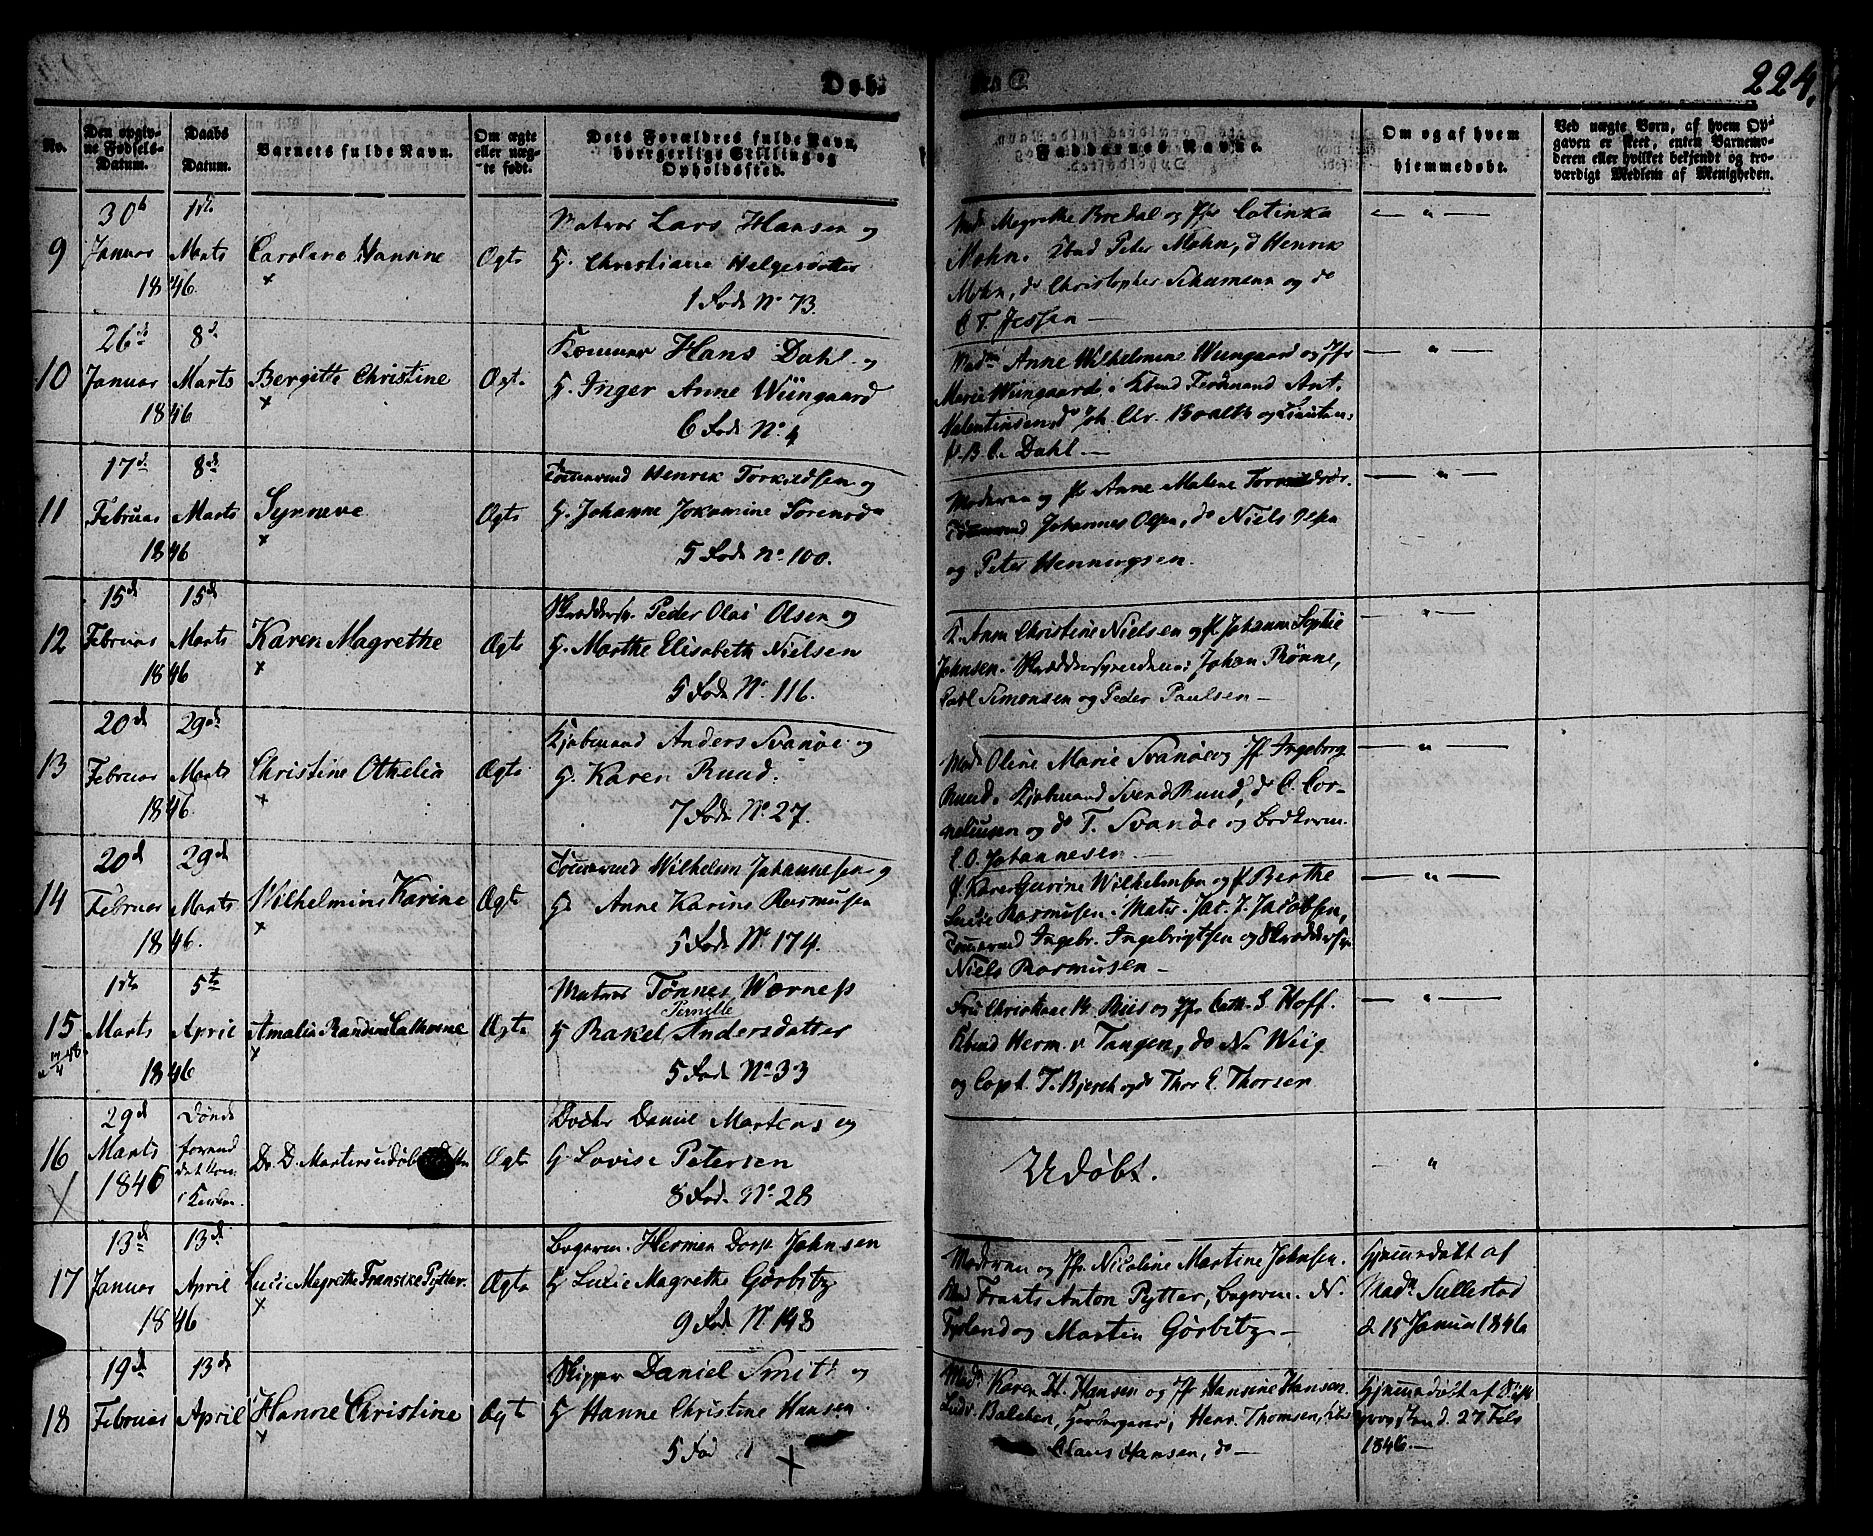 Døbte
224.
No.
Den opgivne Fødsels-Datum.
Daabs Datum.
Barnets fulde Navn.
Om ægte eller uægte født.
Dets Forældres fulde Navn, borgerlige Stilling og Opholdssted.
Faddernes Navne.
Om og af hvem hjemmedøbt.
Ved uægte Børn, af hvem Opgaven er skeet, enten Barnemoderen eller hvilket bekjendt og troværdigt Medlem af Menigheden.
9
30te Januar 1846
1ste Marts
Caroline Hansine
×
Ægte
Matros Lars Hansen og
H. Christiane Helgesdatter
1 Rode No 73.
Mad. Megrethe Bredal og Jfr Catinka
Mohn. Kbmd Peter Mohn, do Henrik
Mohn, do Christopher Schumann og do
C T. Jessen —
— " —
10
26de Januar 1846
8de Marts
Bergitte Christine
×
Ægte
Kæmner Hans Dahl og
H. Inger Anne Wiingaard
6 Rode No 4
Madm Anne Wilhelmine Wiingaard og Jfr
Marie Wiingaard. Kbmd Ferdinand Ant.
Valentinsen, do Joh. Chr. Boalth og
B. C. Dahl. —
— " —
11
17de Februar 1846
8de Marts
Synneve
×
Ægte
Tømmermd Henrik Torkildsen og
H. Johanne Jokumine Sørensdr
5 Rode No 100.
Moderen og P. Anne Malene
Tømmermd Johannes Olsen, do Niels Olsen
og Peter Henningsen.
— " —
12
15de Februar 1846
15de Marts
Karen Magrethe
×
Ægte
Skræddersv. Peder Olai Olsen og
H. Marthe Elisabeth Nielsen
5 Rode No 116.
K. Anne Christine Nielsen og P. Johanne Sophie
Johnsen. Skræddersvendene: Johan Rønne,
Carl Simonsen og Peder Paulsen —
— " —
13
20de Februar 1846
29de Marts
Christine Othelia
×
Ægte
Kjøbmand Anders Svanøe og
H. Karen Ruud.
7 Rode No 27.
Mad. Oline Marie Svanøe og Jfr Ingeborg
Ruud. Kjøbmand Svend Ruud, do C. Cor-
neliusen og do T. Svanøe og
E. O. Johannesen —
— " —
14
20de Februar 1846.
29de Marts
Wilhelmine Karine
×
Ægte
Tømmermd Wilhelm Johannesen og
H. Anne Karine Rasmusen
5 Rode No 174.
P. Karen Gurine Wilhelmsen og P. Berthe
Lucie Rasmusen. Matr. Jac. J. Jacobsen,
Tømmermd Ingebr. Ingebrigtsen og Skræddersv.
Niels Rasmusen —
— " —
15
1ste Marts 1846
5te April
Amalia Randine Cathrine
×
Ægte
Matros Tønnes Wærness
Pernille
H Rakel Andersdatter
5 Rode No 33
Fru Christiane M. Riis og Jfr Cath. S. Hoff.
Kbmd Herm. v. Tangen, do N. Wiig
og Capt. T. Bjerck og do Thor E. Thorsen
— " —
16
29de Marts 1846
Dr. D. Martens udøbt
Ægte
Doctor Daniel Martens og
H Lovise Petersen
8 Rode No 28
Udøbt.
— "
17
13de Januar 1846
13de April
Lucie Magrethe Franscke Pytter.
×
Ægte
Bogeven. Herman Dorp. Johnsen
H Lucie Magrethe Görbitz
9 Rod. No 148
Moderen og Jfr. Nicoline Martine Johnsen.
Frants Anton Pytter, Bogeven. N.
og Martin Görbitz —
Hjemmedøbt af
Madm Sullestad
d. 15 Januar 1846
18
19de Februar
13de April
Hanne Christine
×
Ægte
Skipper Daniel Smith og
H Hanne Christine Hansen
5 Rod
×
Madm Karen H. Hansen og Jfr Hansine Hansen.
Ludv. Balchen, Henr. Thomsen,
Claus Hansen, do —
Hjemmedøbt af
d. 27 Feb
1846. —